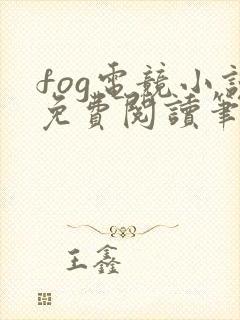 fog電競小說
免費閱讀筆
王鑫